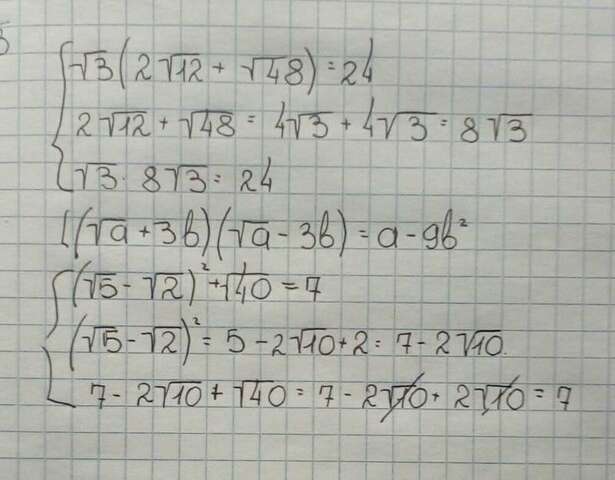 √3(2√12 + √48) = 24
2√12 + √48 = 4√3 + 4√3 = 8√3
√3 · 8√3 = 24
(√a + 3b)(√a - 3b) = a - 9b²
(√5 - √2)² + √40 = 7
(√5 - √2)² = 5 - 2√10 + 2 = 7 - 2√10.
7 - 2√10 + √40 = 7 - 2√10 + 2√10 = 7